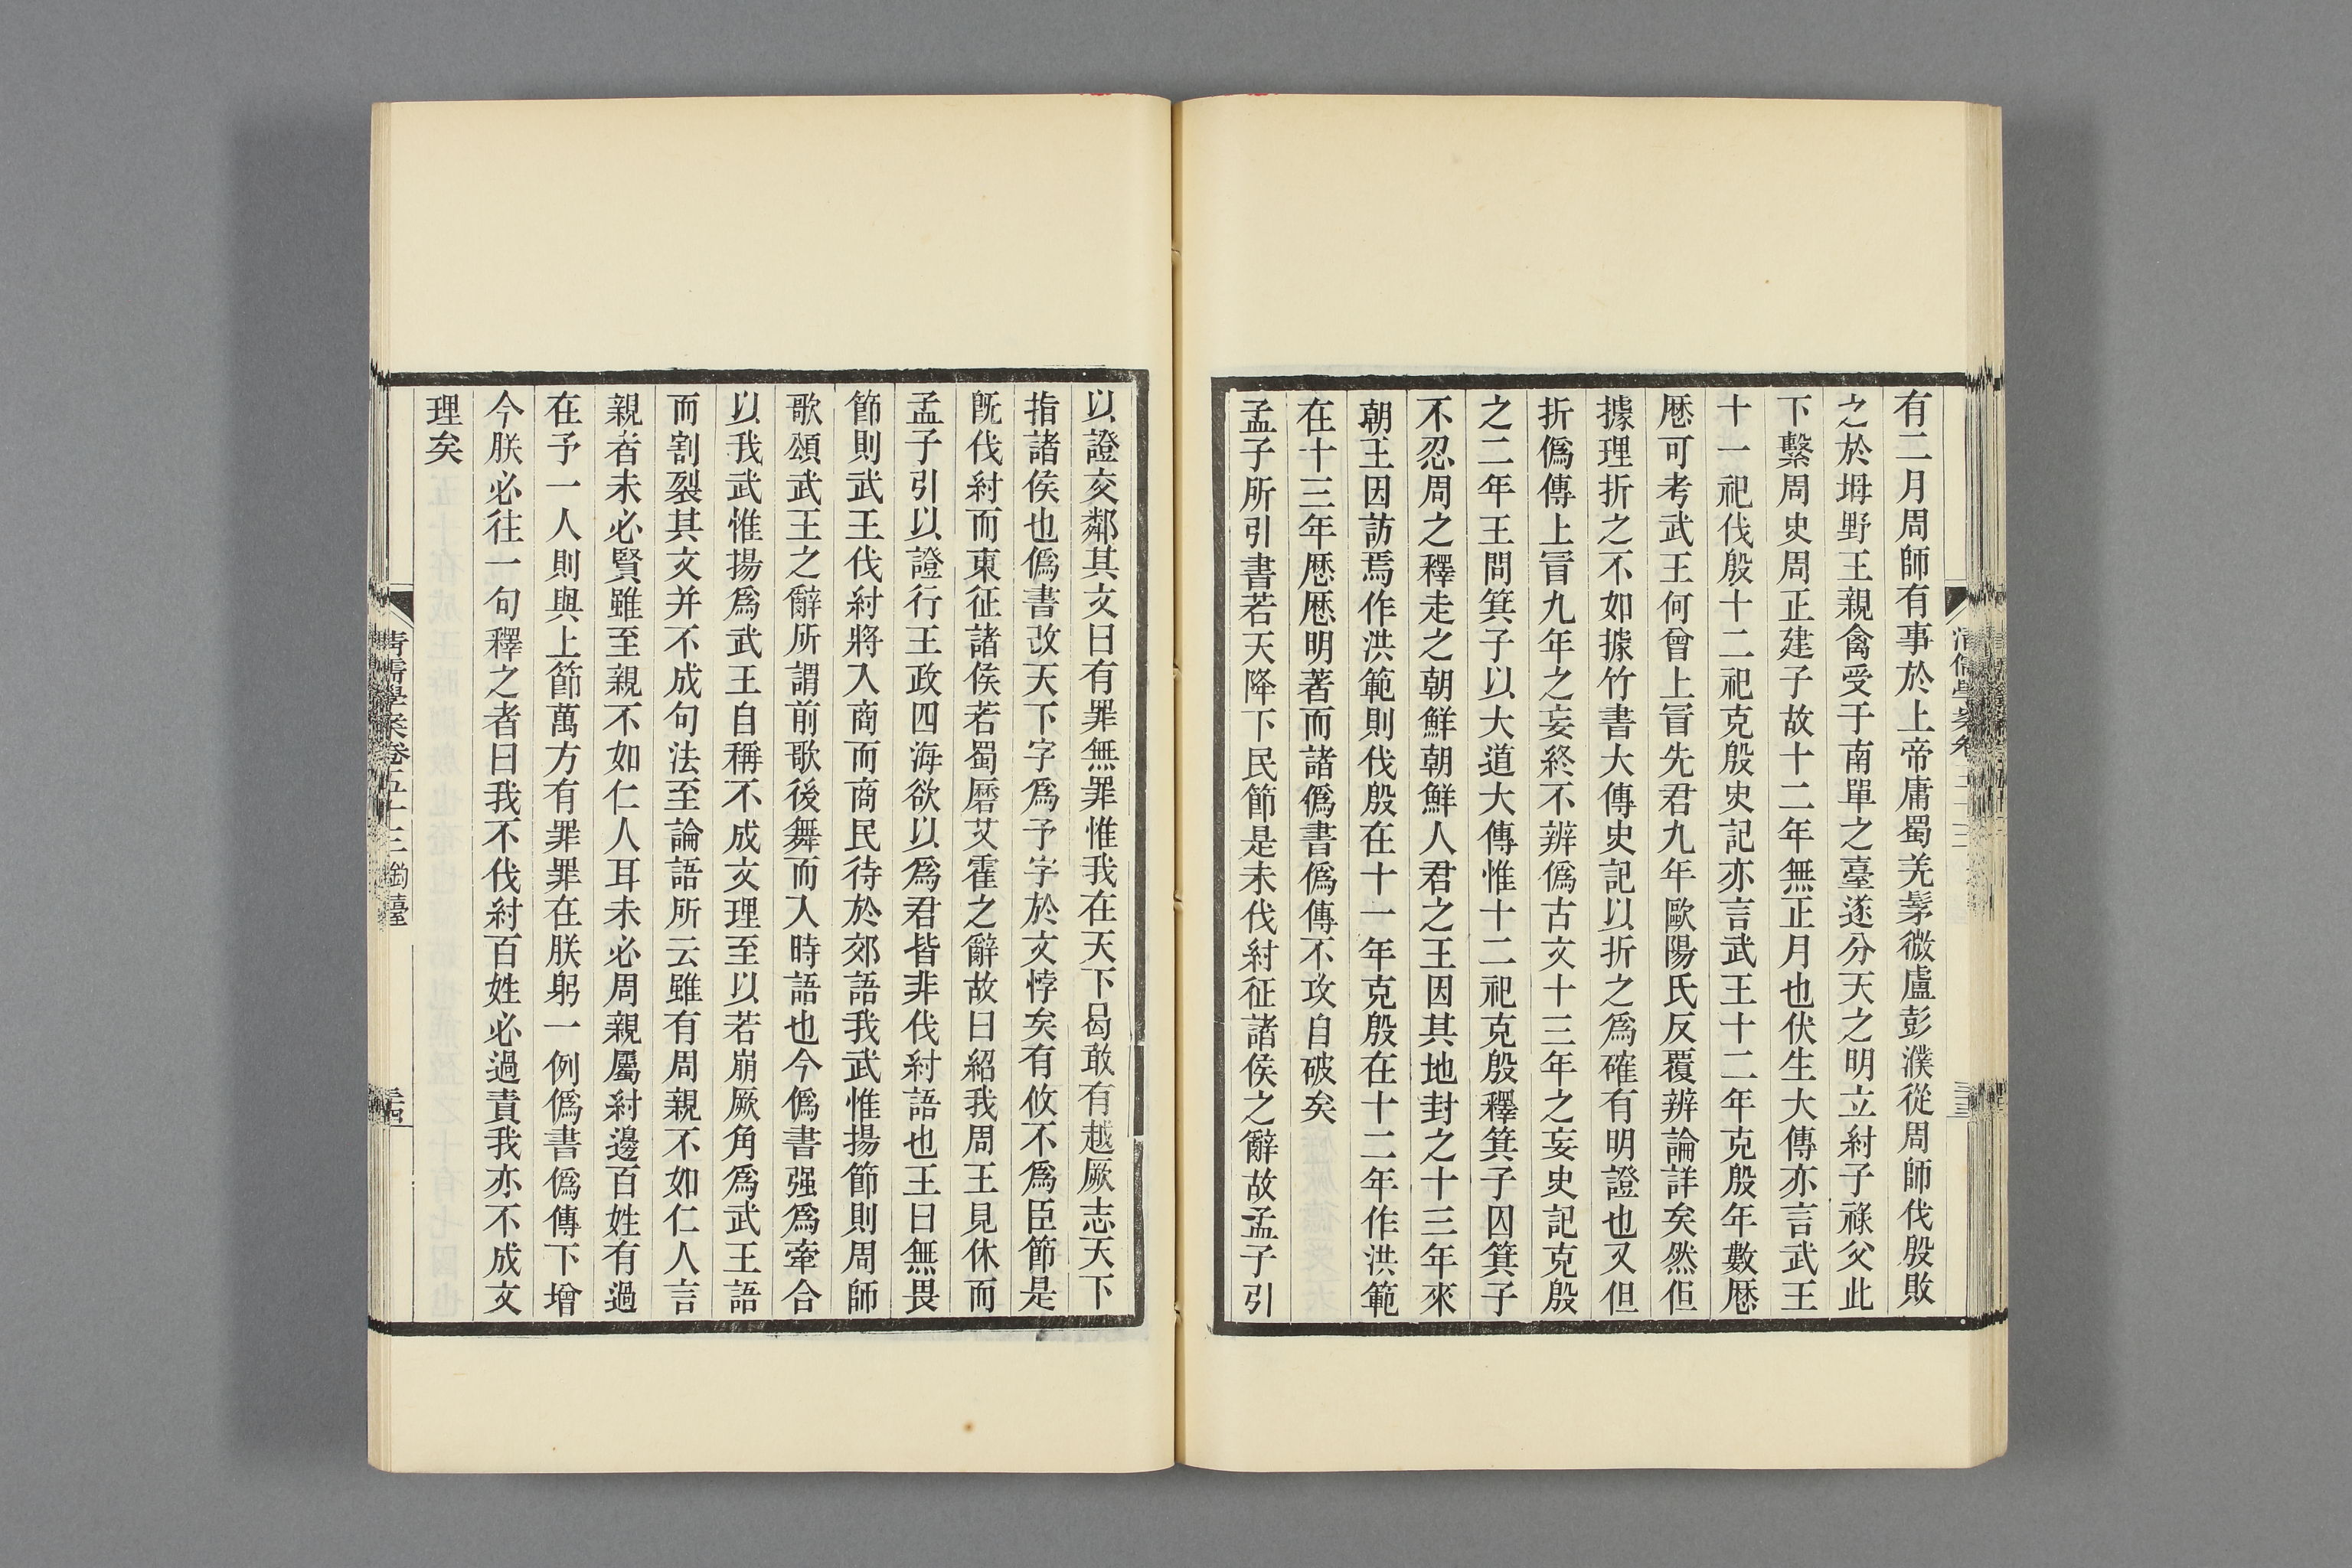 有二月周師有事於上帝庸蜀羌髳微盧彭濮從周師伐殷敗
之於坶野王親禽受于南單之臺遂分天之明立紂子祿父此
下繫周史周正建子故十二年無正月也伏生大傳亦言武王
十一祀伐殷十二祀克殷史記亦言武王十二年克殷年數厯
厯可考武王何曾上冐先君九年歐陽氏反覆辨論詳矣然但
據理折之不如據竹書大傳史記以折之爲確有明證也又但
折僞傳上冐九年之妄終不辨僞古文十三年之妄史記克殷
之二年王問箕子以大道大傳惟十二祀克殷釋箕子囚箕子
不忍周之釋走之朝鮮朝鮮人君之王因其地封之十三年來
朝王因訪焉作洪範則伐殷在十一年克殷在十二年作洪範
在十三年厯厯明著而諸僞書僞傳不攻自破矣
孟子所引書若天降下民節是未伐紂征諸侯之辭故孟子引
以證交鄰其文曰有罪無罪惟我在天下曷敢有越厥志天下
指諸侯也僞書改天下字爲予字於文悖矣有攸不爲臣節是
旣伐紂而東征諸侯若蜀磿艾霍之辭故曰紹我周王見休而
孟子引以證行王政四海欲以爲君皆非伐紂語也王曰無畏
節則武王伐紂將入商而商民待於郊語我武惟揚節則周師
歌頌武王之辭所謂前歌後舞而入時語也今僞書强爲牽合
以我武惟揚爲武王自稱不成文理至以若崩厥角爲武王語
而割裂其文并不成句法至論語所云雖有周親不如仁人言
親者未必賢雖至親不如仁人耳未必周親屬紂邊百姓有過
在予一人則與上節萬方有罪罪在朕躬一例僞書僞傳下增
今朕必往一句釋之者曰我不伐紂百姓必過責我亦不成文
理矣
清儒學案卷五十三 鈞臺
三四